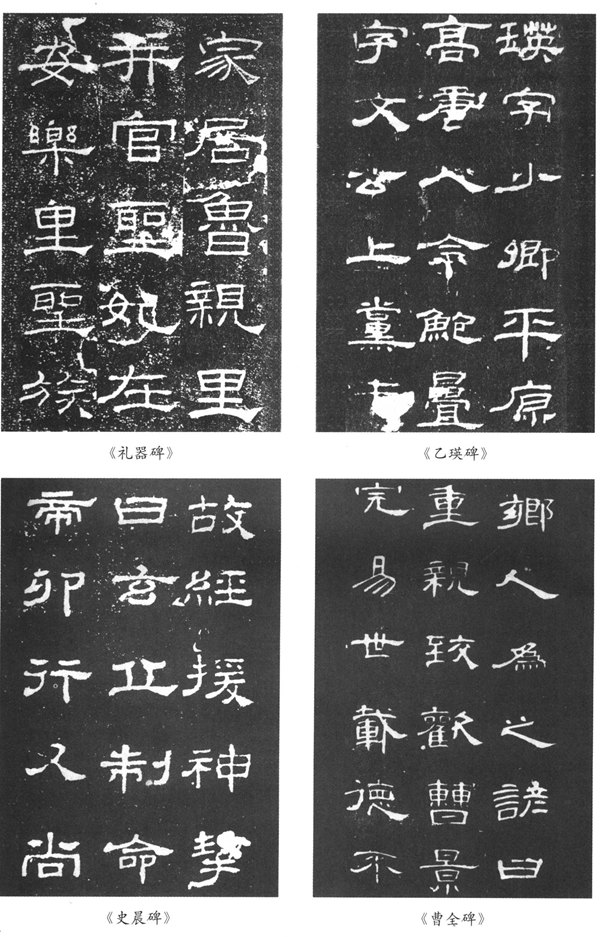 家居魯親里
并官聖妃在
安樂里聖族
《礼器碑》
瑛字少卿平原
高唐人令鮑疊
字文公上黨屯
《乙瑛碑》
故經援神挈
曰玄丘制命
帝卯行又尚
《史晨碑》
鄉人為之諺曰
重親致歡曹景
完易世載德不
《曹全碑》